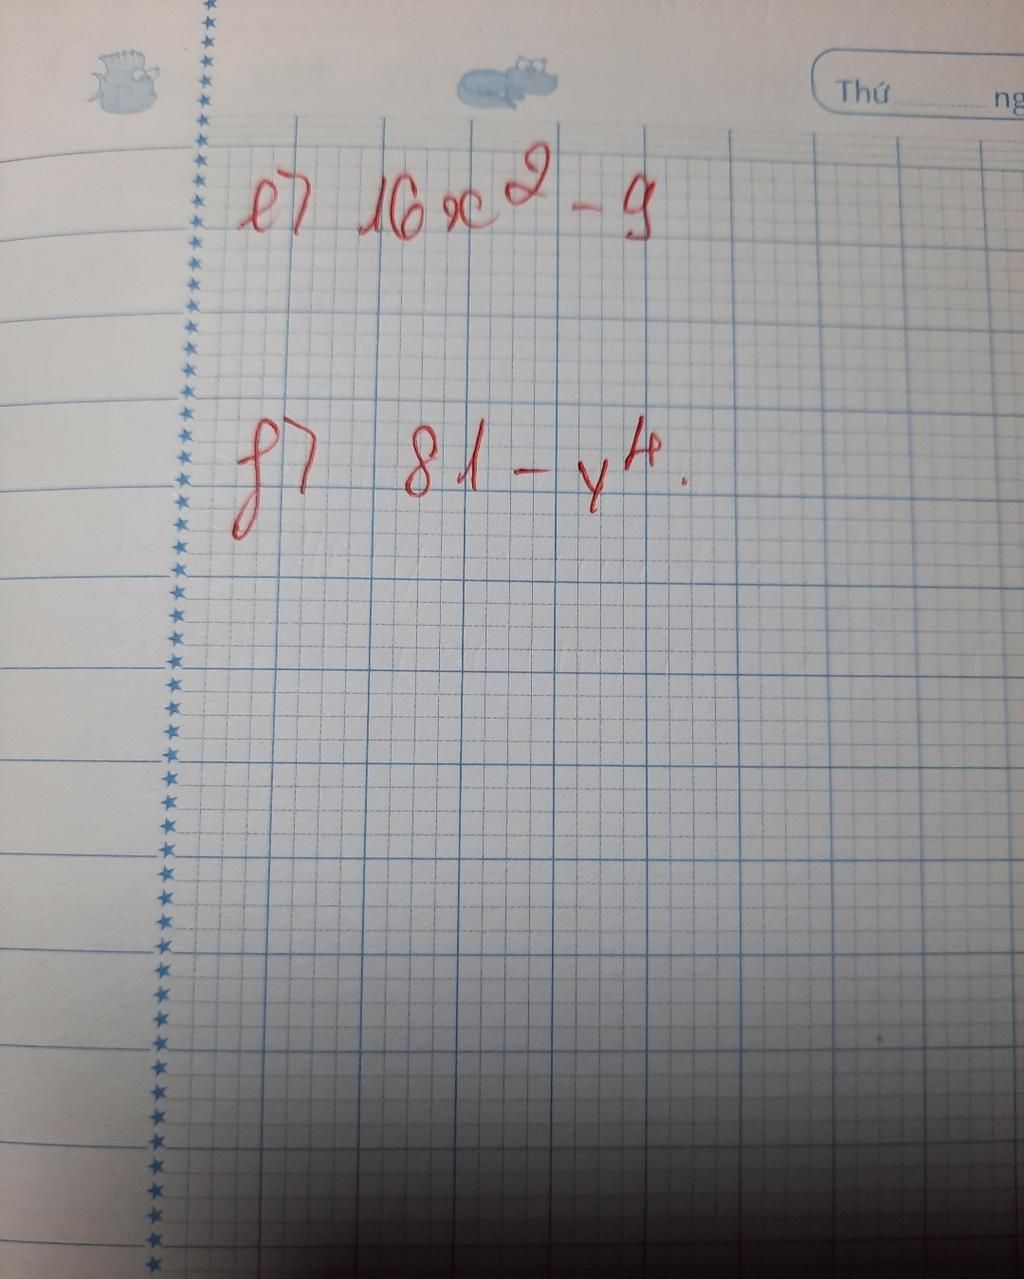 Thứ ........... ng
e) 16x² - 9
f) 81 - y⁴.